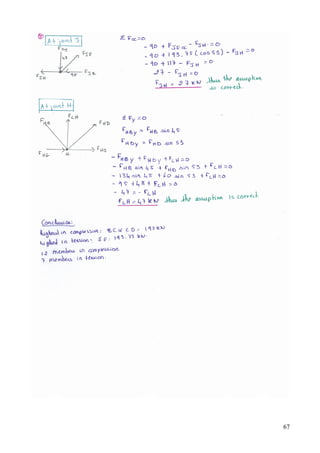 At joint J
Σ Fx=0
- 90 + FJEx - FJH = 0
- 90 + 193.75 (cos 53) - FJH = 0
- 90 + 117 - FJH = 0
27 - FJH = 0
FJH = 27 kN thus the assumption is correct.
FJE
FJH
90
At joint H
FHB
FLH
FHD
FHG
H
FHJ
Σ Fy = 0
FHBy = FHB sin 45
FHDy = FHD sin 53
- FHBy + FHDy + FLH = 0
- FHB sin 45 + FHD sin 53 + FLH = 0
- 134 sin 45 + 60 sin 53 + FLH = 0
- 95 + 48 + FLH = 0
- 47 = - FLH
FLH = 47 kN thus the assumption is correct.
Conclusion:
highest in compression: BC & CD = 192 kN
highest in tension: JE: 193.75 kN.
12 members in compression
7 members in tension.
67